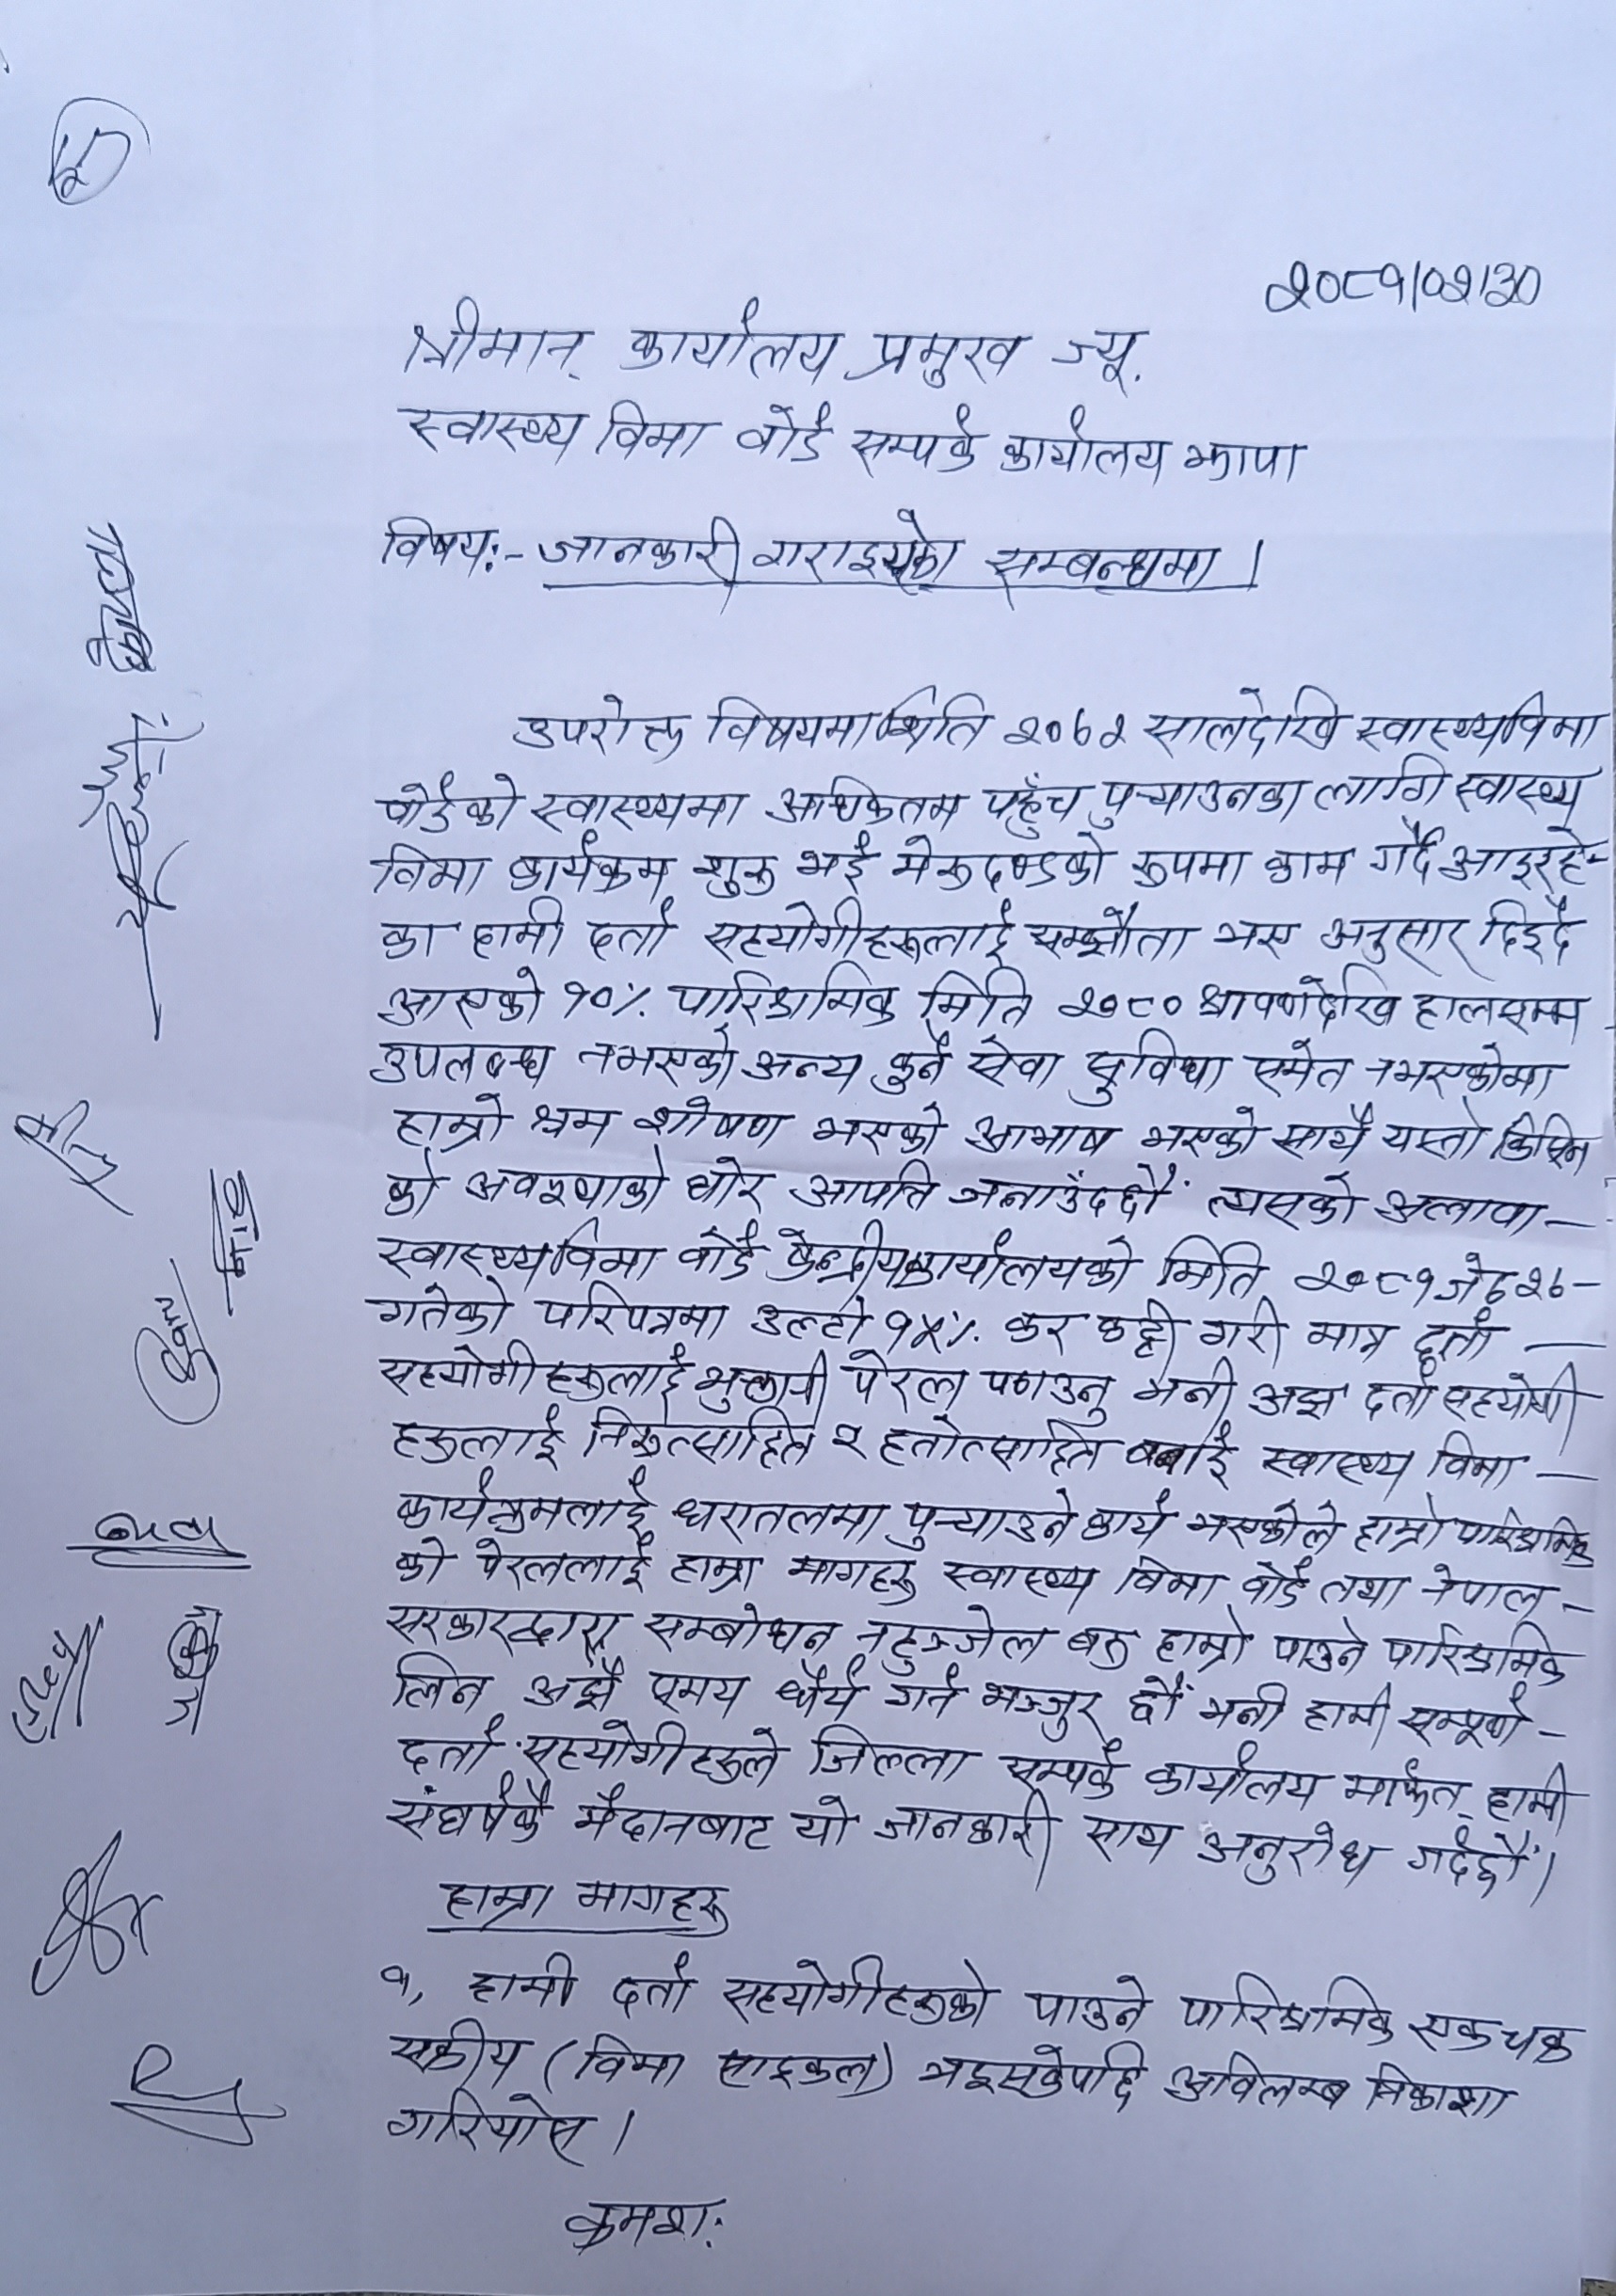 २०८१/०२/३०
श्रीमान् कार्यालय प्रमुख ज्यू.
स्वास्थ्य विमा वोर्ड सम्पर्क कार्यालय झापा
विषय:- जानकारी गराइएको सम्बन्धमा ।
उपरोक्त विषयमा मिति २०७२ सालदेखि स्वास्थ्य विमा
वोर्डको स्वास्थ्यमा अधिकतम पहुँच पुऱ्याउनका लागि स्वास्थ्य
विमा कार्यक्रम शुरु भई मेरुदण्डको रुपमा काम गर्दै आइरहे-
का हामी दर्ता सहयोगीहरुलाई सम्झौता भए अनुसार दिइदै
आएको १०% पारिश्रमिक मिति २०८० श्रावणदेखि हालसम्म
उपलब्ध नभएको अन्य कुनै सेवा सुविधा समेत नभएकोमा
हाम्रो श्रम शोषण भएको आभाष भएको साथै यस्तो
को अवस्थाको घोर आपत्ति जनाउँदछौं त्यसको अलावा -
स्वास्थ्य विमा वोर्ड केन्द्रीय कार्यालयको मिति २०८१ जेठ २७ -
गतेको परिपत्रमा उल्टो १५% कर कट्टी गरी मात्र दर्ता -
सहयोगीहरुलाई भुक्तानी पेरल पठाउनु भनी अझ दर्ता सहयोगी
हरुलाई निरुत्साहित र हतोत्साहित बनाई स्वास्थ्य विमा -
कार्यक्रमलाई धरातलमा पुऱ्याउने कार्य भएकोले हाम्रो पारिश्रमिक
को पेरललाई हाम्रा मागहरु स्वास्थ्य विमा वोर्ड तथा नेपाल -
सरकारद्वारा सम्बोधन नहुञ्जेल बरु हाम्रो पाउने पारिश्रमिक
लिन अझै समय धैर्य गर्न मञ्जुर छौं भनी हामी सम्पूर्ण -
दर्ता सहयोगीहरुले जिल्ला सम्पर्क कार्यालय मार्फत् हामी
संघर्षकै मैदानबाट यो जानकारी साथ अनुरोध गर्दछौं ।
हाम्रा मागहरु
१, हामी दर्ता सहयोगीहरुको पाउने पारिश्रमिक एक चक्र
सकीय (विमा साइकल) भइसकेपछि अविलम्ब निकाशा
गरियोस ।
क्रमश: